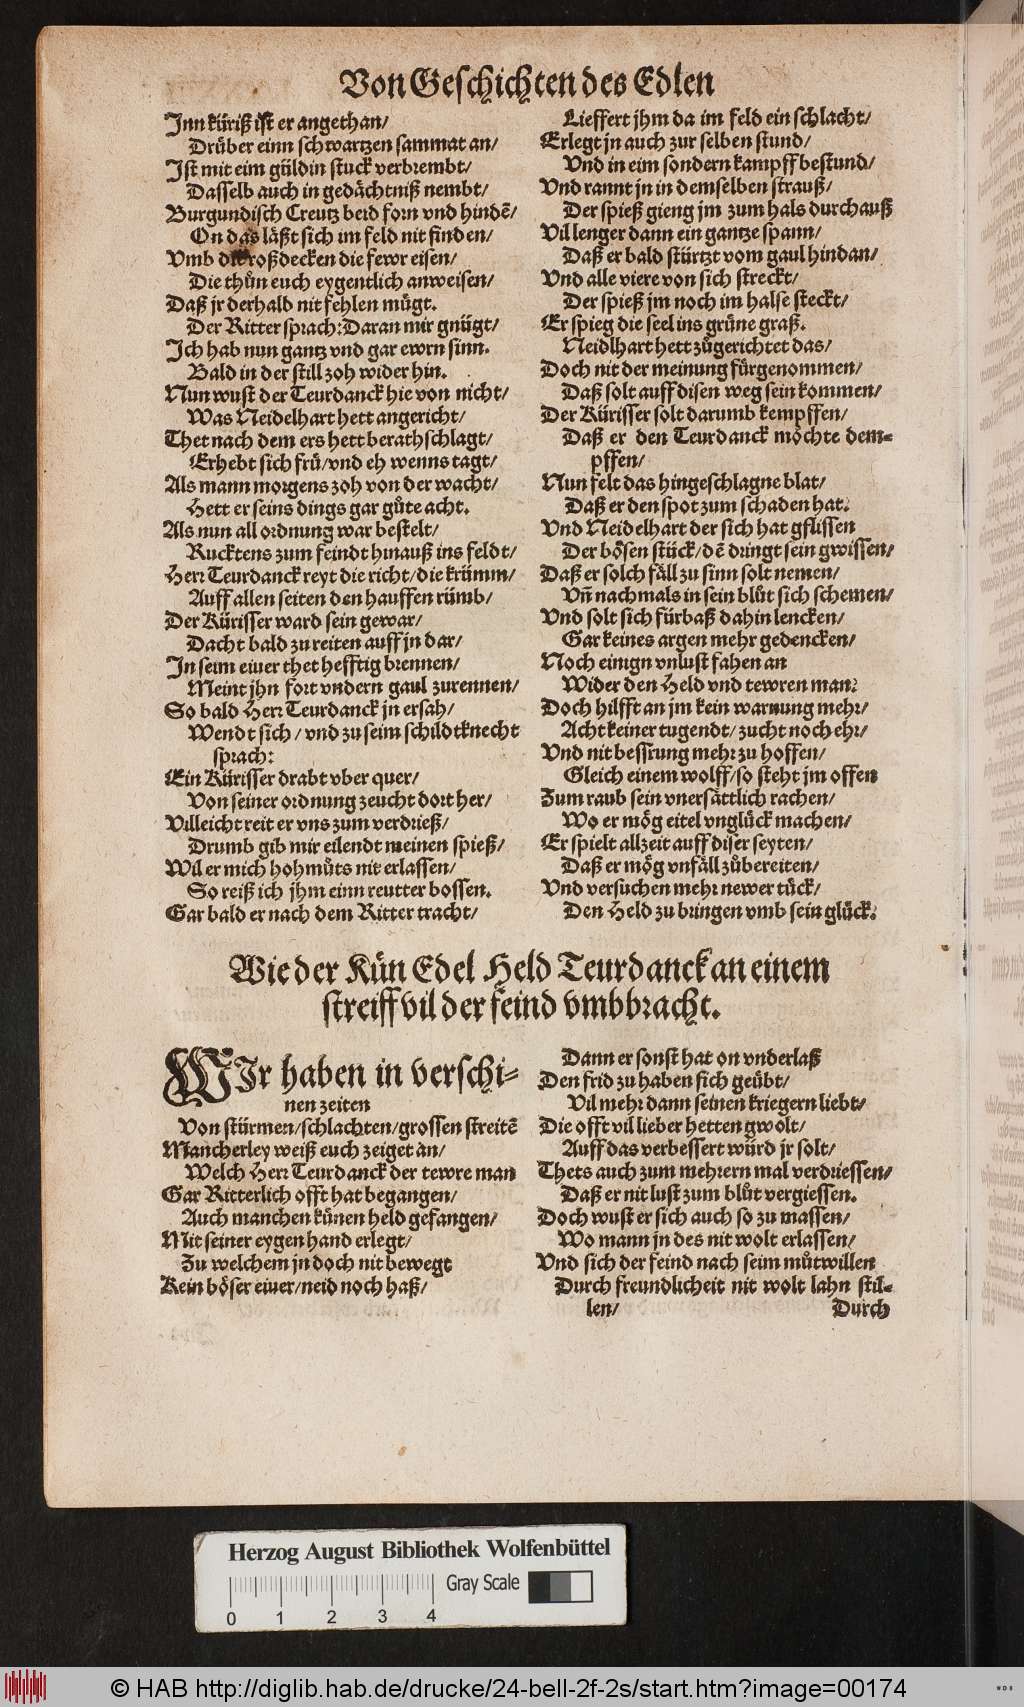 Von Geschichten des Edlen
Inn küriß ist er angethan/
Drüber einn schwartzen sammat an/
Ist mit eim güldin stuck verbrembt/
Dasselb auch in gedächtniß nembt/
Burgundisch Creutz beid forn vnd hindē/
On das läßt sich im feld nit finden/
Vmb die roßdecken die fewr eisen/
Die thůn euch eygentlich anweisen/
Daß jr derhalb nit fehlen mügt.
Der Ritter sprach: Daran mir gnügt/
Ich hab nun gantz vnd gar ewrn sinn.
Bald in der still zoh wider hin.
Nun wust der Teurdanck hie von nicht/
Was Neidelhart hett angericht/
Thet nach dem ers hett berathschlagt/
Erhebt sich frü/vnd eh wenns tagt/
Als mann morgens zoh von der wacht/
Hett er seins dings gar gůte acht.
Als nun all ordnung war bestelt/
Rucktens zum feindt hinauß ins feldt/
Herr Teurdanck reyt die richt/die krümm/
Auff allen seiten den hauffen rümb/
Der Kürisser ward sein gewar/
Dacht bald zu reiten auff jn dar/
In seim eiuer thet hefftig brennen/
Meint jhn fort vndern gaul zurennen/
So bald Herr Teurdanck jn ersah/
Wendt sich/ vnd zu seim schildtknecht
sprach:
Ein Kürisser drabt vber quer/
Von seiner ordnung zeucht dort her/
Villeicht reit er vns zum verdrieß/
Drumb gib mir eilendt meinen spieß/
Wil er mich hohmůts nit erlassen/
So reiß ich jhm einn reutter bossen.
Gar bald er nach dem Ritter tracht/
Lieffert jhm da im feld ein schlacht/
Erlegt jn auch zur selben stund/
Vnd in eim sondern kampff bestund/
Vnd rannt jn in demselben strauß/
Der spieß gieng jm zum hals durchauß
Vil lenger dann ein gantze spann/
Daß er bald stürtzt vom gaul hindan/
Vnd alle viere von sich streckt/
Der spieß jm noch im halse steckt/
Er spieg die seel ins grüne graß.
Neidlhart hett zůgerichtet das/
Doch nit der meinung fürgenommen/
Daß solt auff disen weg sein kommen/
Der Kürisser solt darumb kempffen/
Daß er den Teurdanck möchte dem-
pffen/
Nun felt das hingeschlagne blat/
Daß er den spot zum schaden hat.
Vnd Neidelhart der sich hat gflissen
Der bösen stück/dē dringt sein gwissen/
Daß er solch fäll zu sinn solt nemen/
Vñ nachmals in sein blůt sich schemen/
Vnd solt sich fürbaß dahin lencken/
Gar keines argen mehr gedencken/
Noch einign vnlust fahen an
Wider den Held vnd tewren man:
Doch hilfft an jm kein warnung mehr/
Acht keiner tugendt/ zucht noch ehr/
Vnd nit bessrung mehr zu hoffen/
Gleich einem wolff/so steht jm offen
Zum raub sein vnersättlich rachen/
Wo er mög eitel vnglück machen/
Er spielt allzeit auff diser seyten/
Daß er mög vnfäll zůbereiten/
Vnd versuchen mehr newer tück/
Den Held zu bringen vmb sein glück.
Wie der Kün Edel Held Teurdanck an einem
streiff vil der feind vmbbracht.
WIr haben in verschi-
nen zeiten
Von stürmen/schlachten/grossen streitē
Mancherley weiß euch zeiget an/
Welch Herr Teurdanck der tewre man
Gar Ritterlich offt hat begangen/
Auch manchen künen held gefangen/
Mit seiner eygen hand erlegt/
Zu welchem jn doch nit bewegt
Kein böser eiuer/neid noch haß/
Dann er sonst hat on vnderlaß
Den frid zu haben sich geübt/
Vil mehr dann seinen kriegern liebt/
Die offt vil lieber hetten gwolt/
Auff das verbessert würd jr solt/
Thets auch zum mehrern mal verdriessen/
Daß er nit lust zum blůt vergiessen.
Doch wust er sich auch so zu massen/
Wo mann jn des nit wolt erlassen/
Vnd sich der feind nach seim můtwillen
Durch freundlicheit nit wolt lahn stil-
len/
Durch
Herzog August Bibliothek Wolfenbüttel
Gray Scale
0 1 2 3 4
© HAB http://diglib.hab.de/drucke/24-bell-2f-2s/start.htm?image=00174